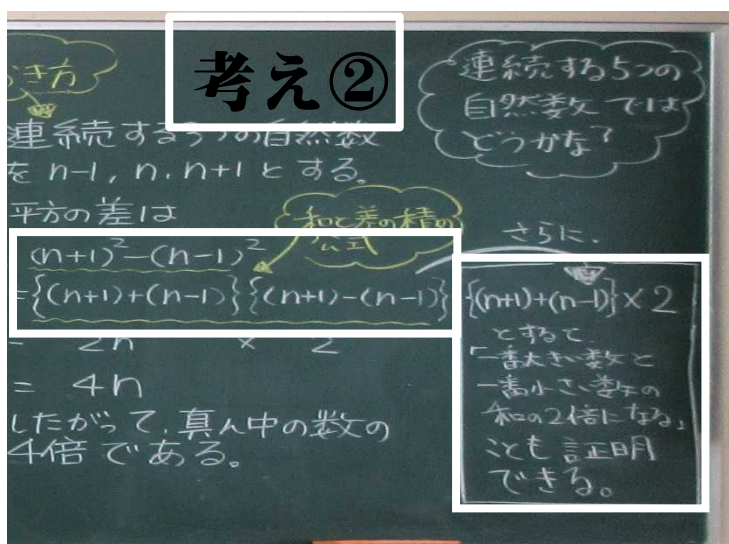 考え②
き方
連続する3つの自然数
を n-1, n, n+1 とする。
平方の差は
和と差の積の
公式
(n+1)²-(n-1)²
={(n+1)+(n-1)}{(n+1)-(n-1)}
= 2n × 2
= 4n
したがって、真ん中の数の
4倍である。
連続する5つの
自然数では
どうかな?
さらに、
{(n+1)+(n-1)}×2
とすると、
「一番大きい数と
一番小さい数の
和の2倍になる」
ことも証明
できる。